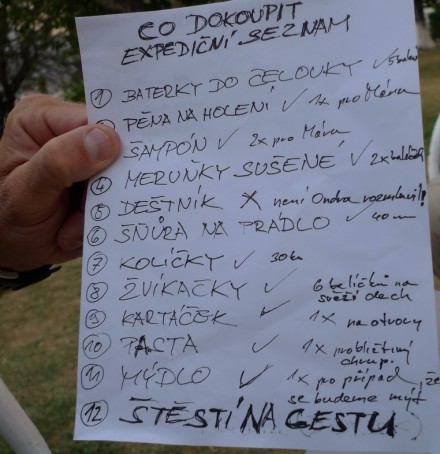 CO DOKOUPIT
EXPEDIČNÍ SEZNAM
1 BATERKY DO ČELOVKY ✓
PĚNA NA HOLENÍ ✓ 1x pro Máru
ŠAMPÓN ✓ 2x pro Máru
4 MERUŇKY SUŠENÉ ✓ 2x
5 DEŠTNÍK X není Ondra
6 ŠŇŮRA NA PRÁDLO ✓ 40 m
7 KOLÍČKY ✓ 30 ks
8 ŽVÍKAČKY ✓ 6 balíčků na
svěží dech
9 KARTÁČEK ✓ 1x na otvory
10 PASTA ✓ 1x pro blištivý
chrup
11 MÝDLO ✓ 1x pro případ, že
se budeme mýt
12 ŠTĚSTÍ NA CESTU